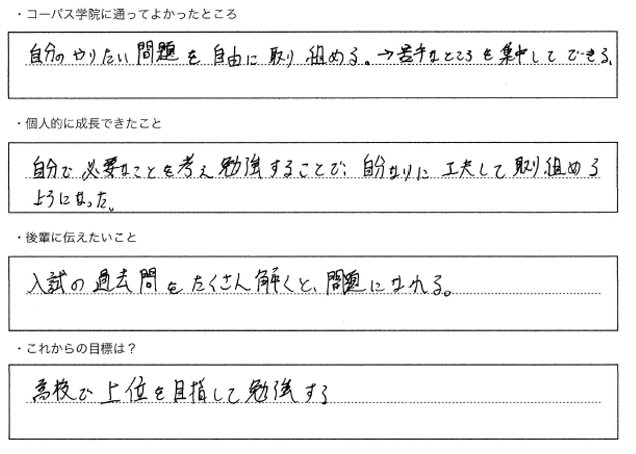 ・コーパス学院に通ってよかったところ
自分のやりたい問題を自由に取り組める。→苦手なところを集中してできる。
・個人的に成長できたこと
自分で必要なことを考え勉強することで、自分なりに工夫して取り組める
ようになった。
・後輩に伝えたいこと
入試の過去問をたくさん解くと、問題になれる。
・これからの目標は？
高校で上位を目指して勉強する